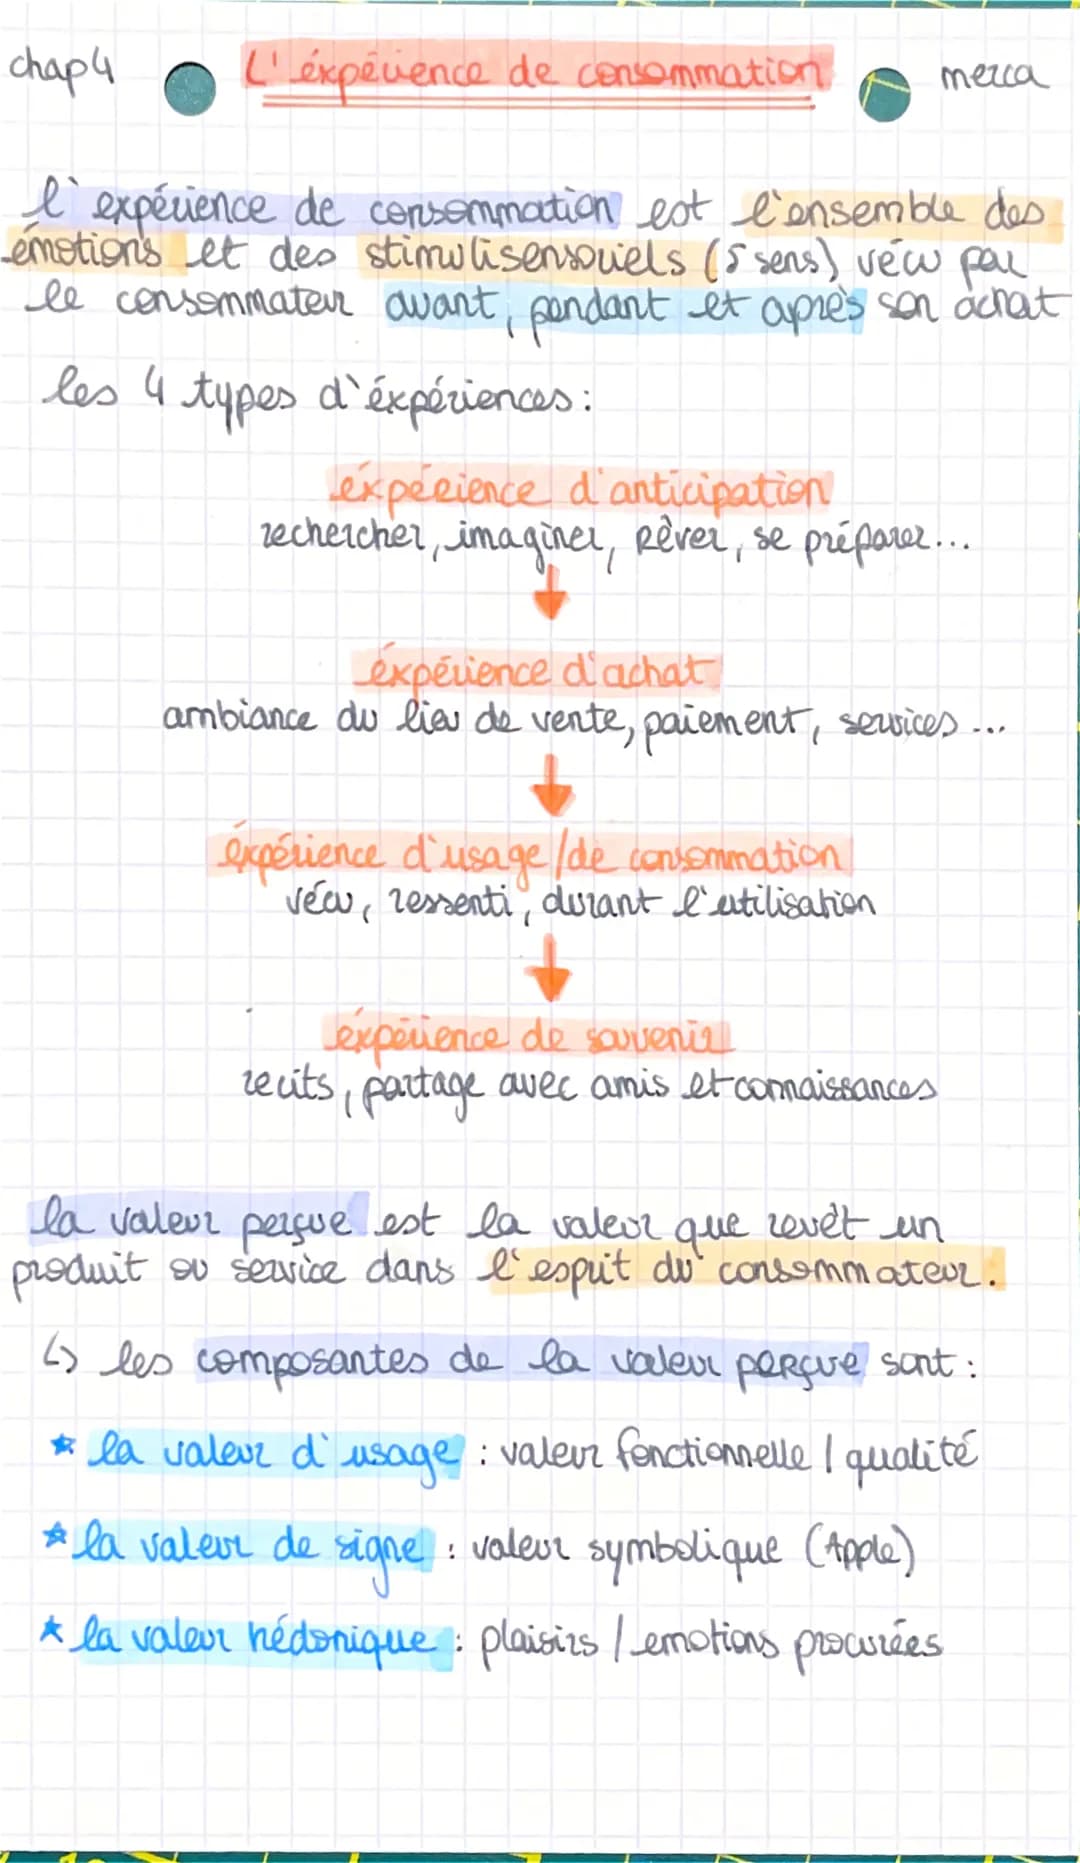 chap 4 L'éxpérience de consommation merca
l'expérience de consommation est l'ensemble des
émotions et des stimulisensoriels (5 sens) vécu par
le consommateur avant, pendant et après son achat
les 4 types d'éxpériences :
éxpérience d'anticipation
rechercher, imaginer, rêver, se préparer...
éxpérience d'achat
ambiance du lieu de vente, paiement, services ...
éxpérience d'usage / de consommation
vécu, ressenti, durant l'utilisation
éxpérience de souvenir
recits, partage avec amis et connaissances
la valeur perçue est la valeur que revêt un
produit ou service dans l'esprit du consommateur.
↳ les composantes de la valeur perçue sont :
★ la valeur d'usage : valeur fonctionnelle / qualité
★ la valeur de signe : valeur symbolique (Apple)
★ la valeur hédonique : plaisirs / emotions procurées